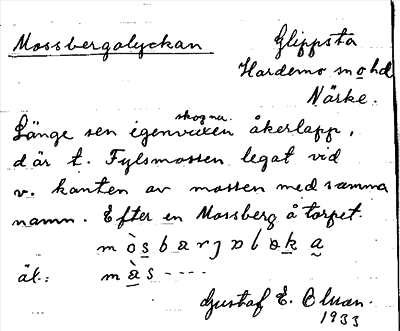 Mossbergalyckan
Glippsta
Hardemo sn o hd
Närke.
skogna
Länge sen igenvuxen åkerlapp,
där t. Fylsmossen legat vid
v. kanten av mossen med samma
namn. Efter en Mossberg å torpet.
äl.: m à s ----
Gustaf E. Elman.
1933